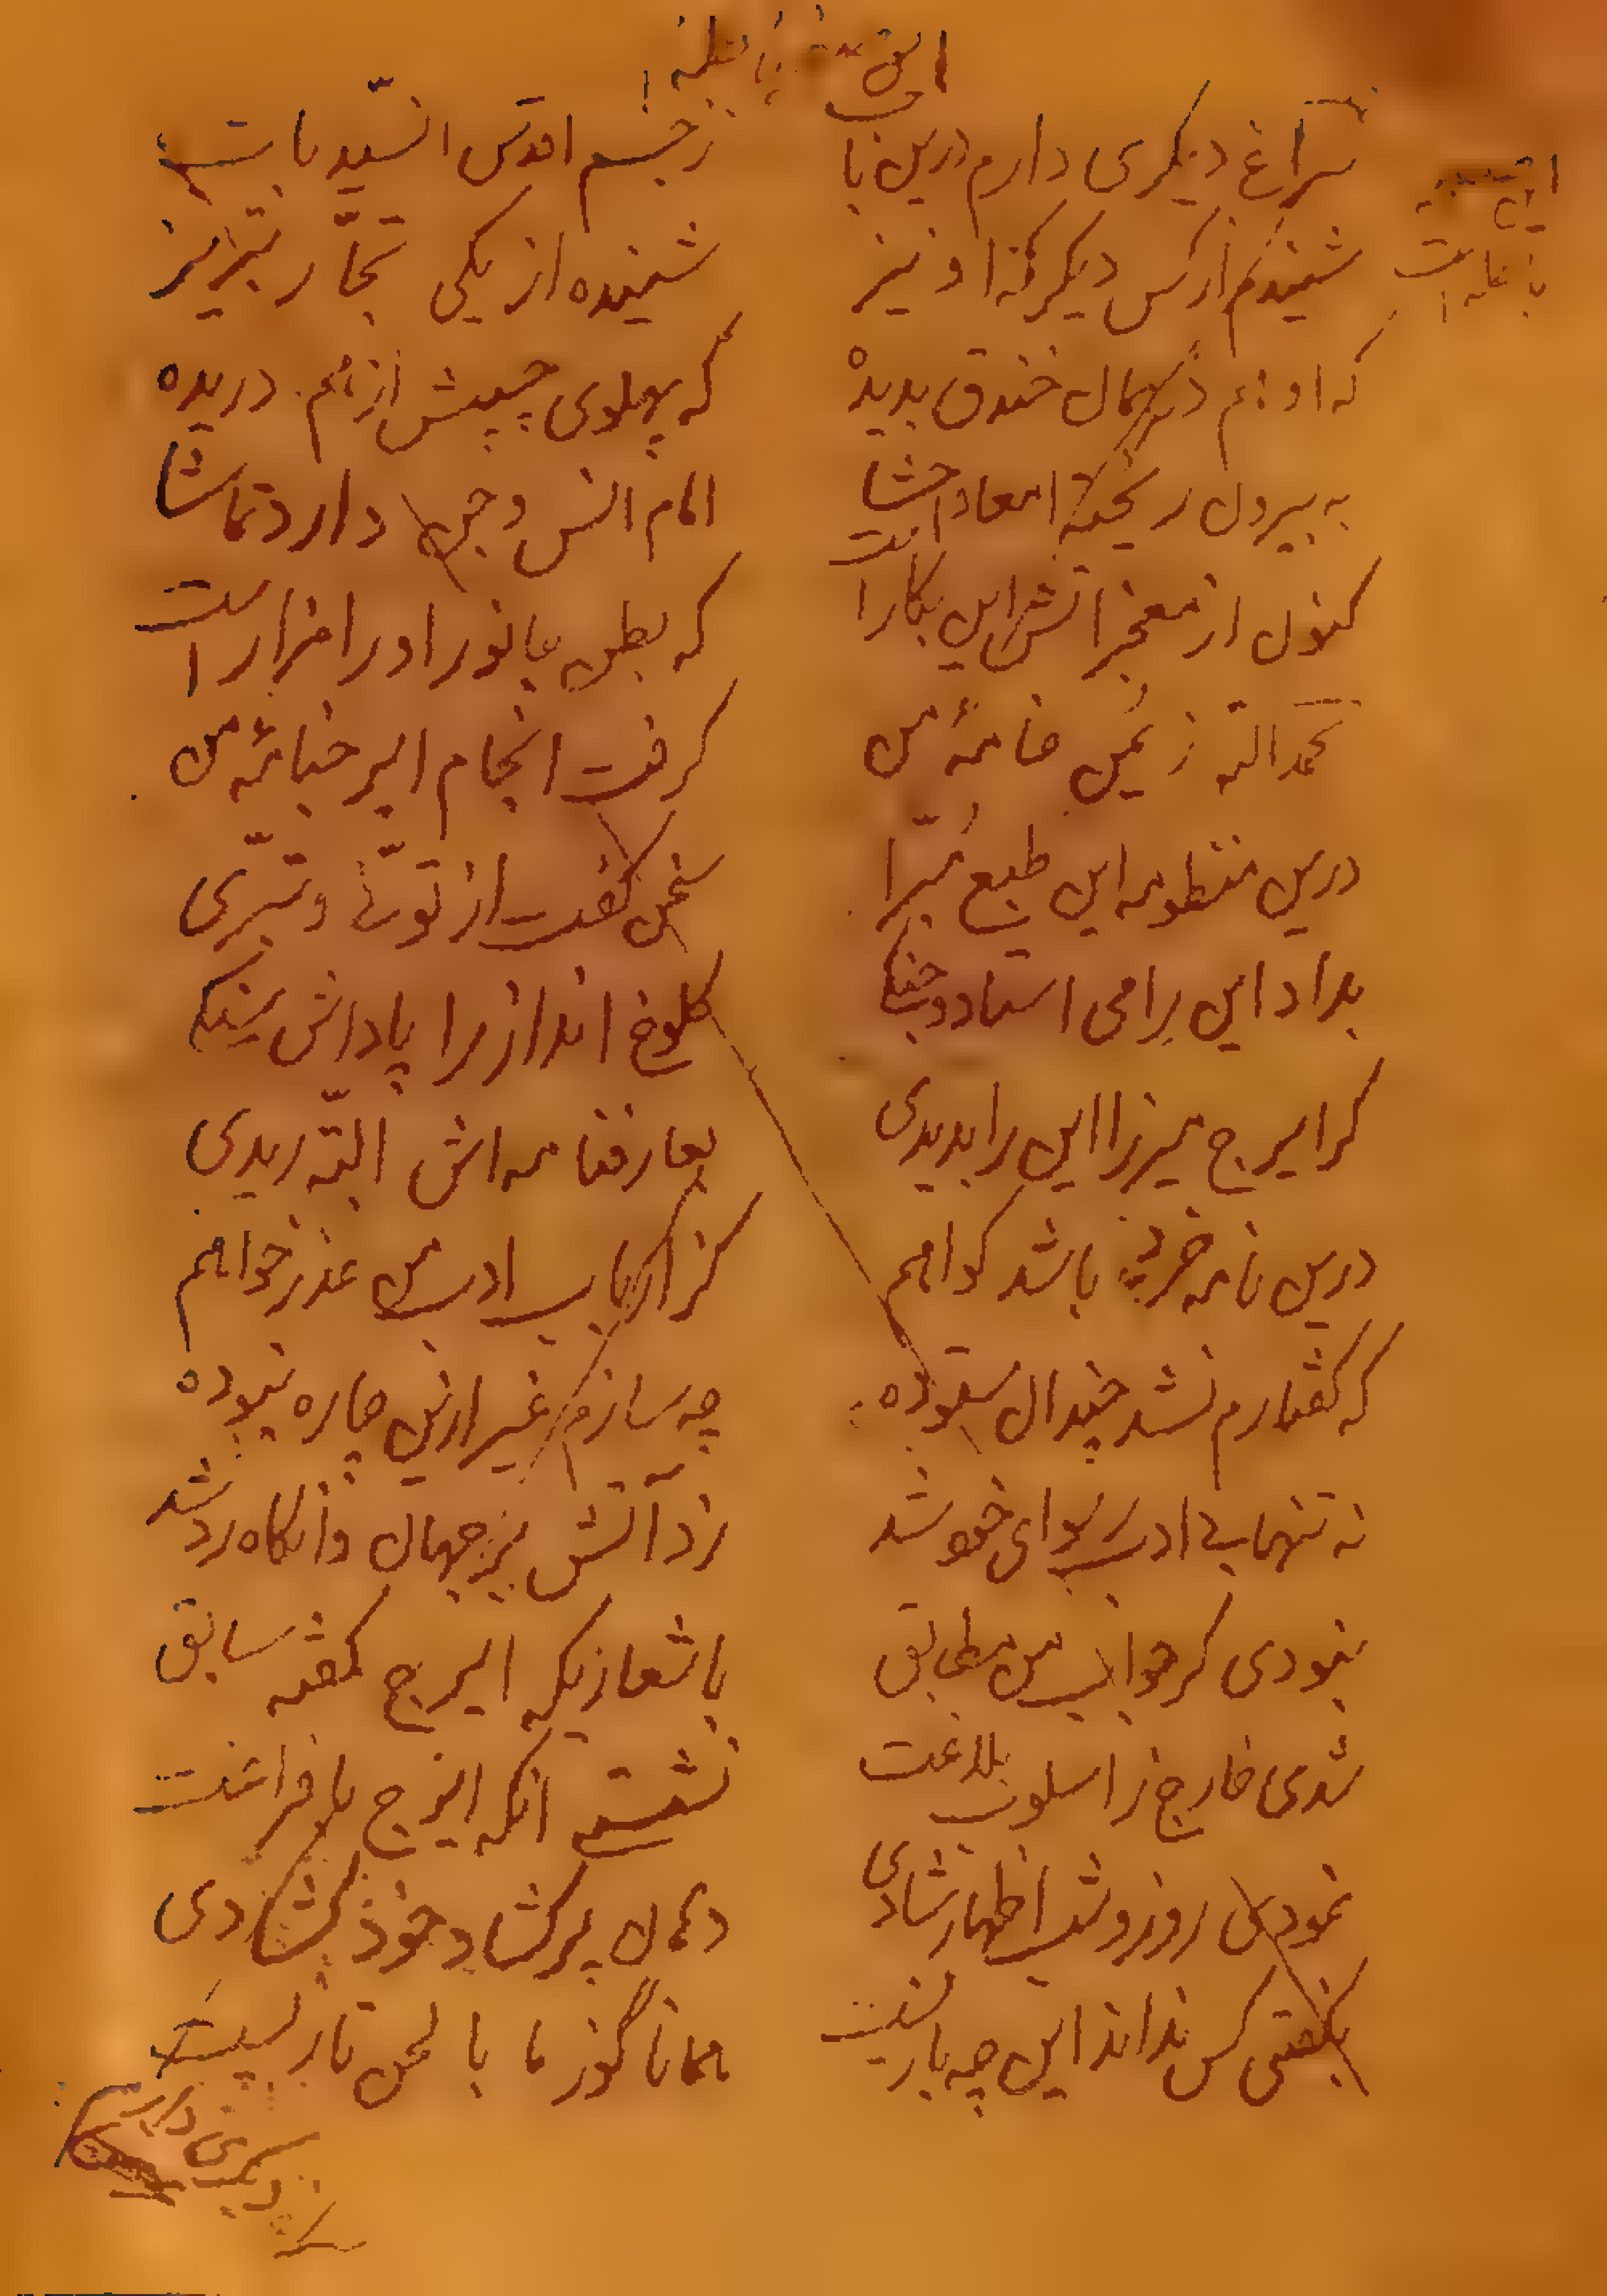 سراغ دیگری دارم درین باب ز جسم اقدس السید باب
شنیدم از کس دیگر که او نیز شنیده از یکی تجار تبریز
که او هم در همان خندق بدیده که پهلوی چپش از هم دریده
به بیرون ریخته امعاء و احشا امام انس و جن دارد تماشا
کنون از معجزاتش این بکار است که بطن جانور او را مزار است
بحمدالله ز یمن خامهٔ من گرفت انجام ایرجنامهٔ من
درین منظومه این طبع مبرّا سخن گفت از تولّی و تبرّی
بداد این رامی استاد و جنگ کلوخ انداز را پاداش سنگ
گر ایرج میرزا این را بدیدی بعارفنامه‌اش البتّه ریدی
درین نامه خرد باشد گواهم کز ارباب ادب من عذر خواهم
که گفتارم نشد چندان ستوده چه سازم غیر ازین چاره نبوده
نه تنها بی ادب رسوای خود شد زد آتش بر جهان وانگاه رد شد
نبودی گر جواب من مطابق باشعاریکه ایرج گفته سابق
شدی خارج ز اسلوب بلاغت نشستی آنکه ایرج با فراغت
نمودی روز و شب اظهار شادی دهان پر گشاد خود گشادی
بگفتی کس نداند این چه بازیست همانا گوز ما با لحن تازیست